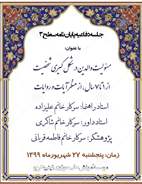 جلسه دفاعیه پایان نامه سطح ۳
با عنوان:
مسئولیت والدین در شکل گیری شخصیت
از ۷ تا ۱۴ سال، از منظر آیات و روایات
استاد راهنما: سرکار خانم علیزاده
استاد داور: سرکار خانم شاکری
پژوهشگر: سرکار خانم فاطمه قربانی
زمان: پنجشنبه ۲۷ شهریور ماه ۱۳۹۹